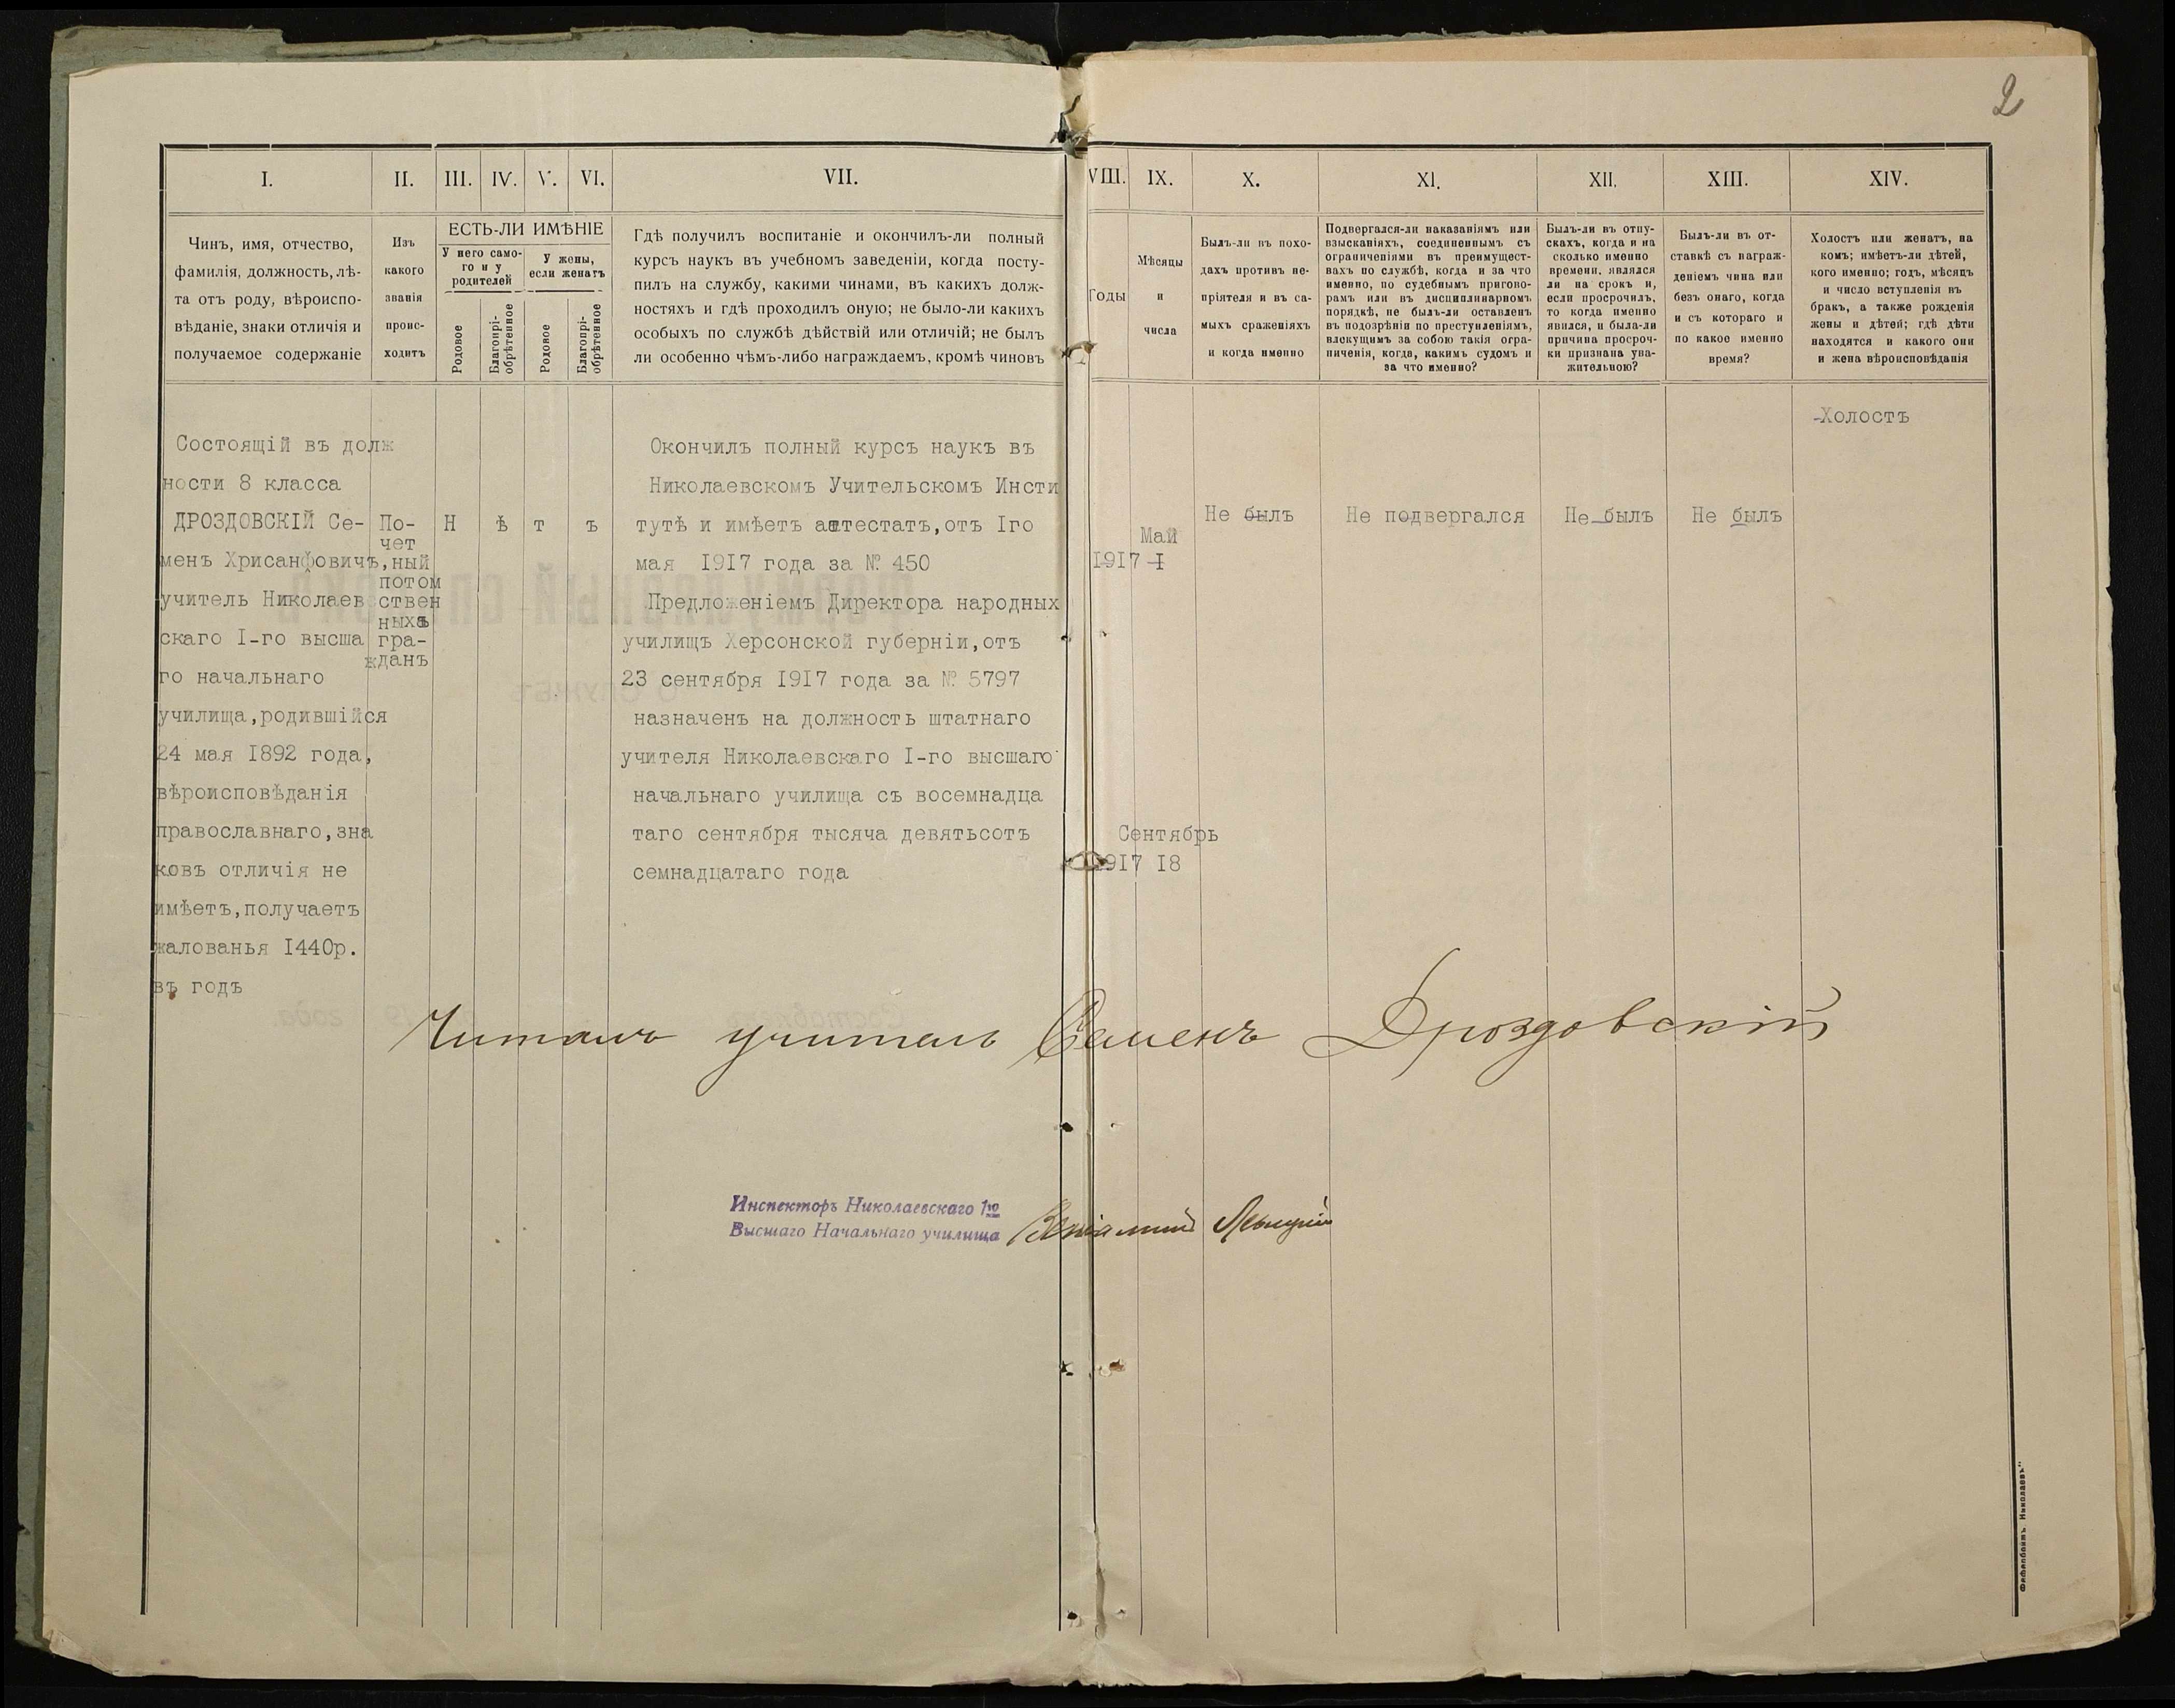 2
I.
II.
III.
IV.
V.
VI.
VII.
VIII.
IX.
X.
XI.
XII.
XIII.
XIV.
Чинъ, имя, отчество,
фамилія, должность, лѣ-
та отъ роду, вѣроиспо-
вѣданіе, знаки отличія и
получаемое содержаніе
Изъ
какого
званія
проис-
ходитъ
ЕСТЬ-ЛИ ИМѢНІЕ
У него само-
го и у
родителей
У жены,
если женатъ
Родовое
Благопрі-
обрѣтенное
Родовое
Благопрі-
обрѣтенное
Гдѣ получилъ воспитаніе и окончилъ-ли полный
курсъ наукъ въ учебномъ заведеніи, когда посту-
пилъ на службу, какими чинами, въ какихъ долж-
ностяхъ и гдѣ проходилъ оную; не было-ли какихъ
особыхъ по службѣ дѣйствій или отличій; не былъ
ли особенно чѣмъ-либо награждаемъ, кромѣ чиновъ
Годы
Мѣсяцы
и
числа
Былъ-ли въ похо-
дахъ противъ не-
пріятеля и въ са-
мыхъ сраженіяхъ
и когда именно
Подвергался-ли наказаніямъ или
взысканіяхъ, соединеннымъ съ
ограниченіями въ преимущест-
вахъ по службѣ, когда и за что
именно, по судебнымъ пригово-
рамъ или въ дисциплинарномъ
порядкѣ, не былъ-ли оставленъ
въ подозрѣніи по преступленіямъ,
влекущимъ за собою такія огра-
ниченія, когда, какимъ судомъ и
за что именно?
Былъ-ли въ отпу-
скахъ, когда и на
сколько именно
времени, являлся
ли на срокъ и,
если просрочилъ,
то когда именно
явился, и была-ли
причина просроч-
ки признана ува-
жительною?
Былъ-ли въ от-
ставкѣ съ награж-
деніемъ чина или
безъ онаго, когда
и съ котораго и
по какое именно
время?
Холостъ или женатъ, на
комъ; имѣетъ-ли дѣтей,
кого именно; годъ, мѣсяцъ
и число вступленія въ
бракъ, а также рожденія
жены и дѣтей; гдѣ дѣти
находятся и какого они
и жена вѣроисповѣданія
Состоящій въ долж
ности 8 класса
ДРОЗДОВСКІЙ Се-
менъ Хрисанфовичъ,
учитель Николаев
скаго I-го высша
го начальнаго
училища,родившійся
24 мая 1892 года,
вѣроисповѣданія
православнаго,зна
ковъ отличія не
имѣетъ,получаетъ
жалованья 1440р.
въ годъ
По-
чет
ный
потом
ствен
ныхъ
гра-
жданъ
Н ѣ т ъ
Окончилъ полный курсъ наукъ въ
Николаевскомъ Учительскомъ Инсти
тутѣ и имѣетъ аттестатъ,отъ Iго
мая I9I7 года за № 450
Предложеніемъ Директора народных
училищъ Херсонской губерніи,отъ
23 сентября I9I7 года за № 5797
назначенъ на должность штатнаго
учителя Николаевскаго I-го высшаго
начальнаго училища съ восемнадца
таго сентября тысяча девятьсотъ
семнадцатаго года
Май
I9I7 I
Сентябрь
I9I7 I8
Не былъ
Не подвергался
Не былъ
Не былъ
-Холостъ
Читалъ учитель Семенъ Дроздовскій
Инспекторъ Николаевскаго 1го
Высшаго Начальнаго училища